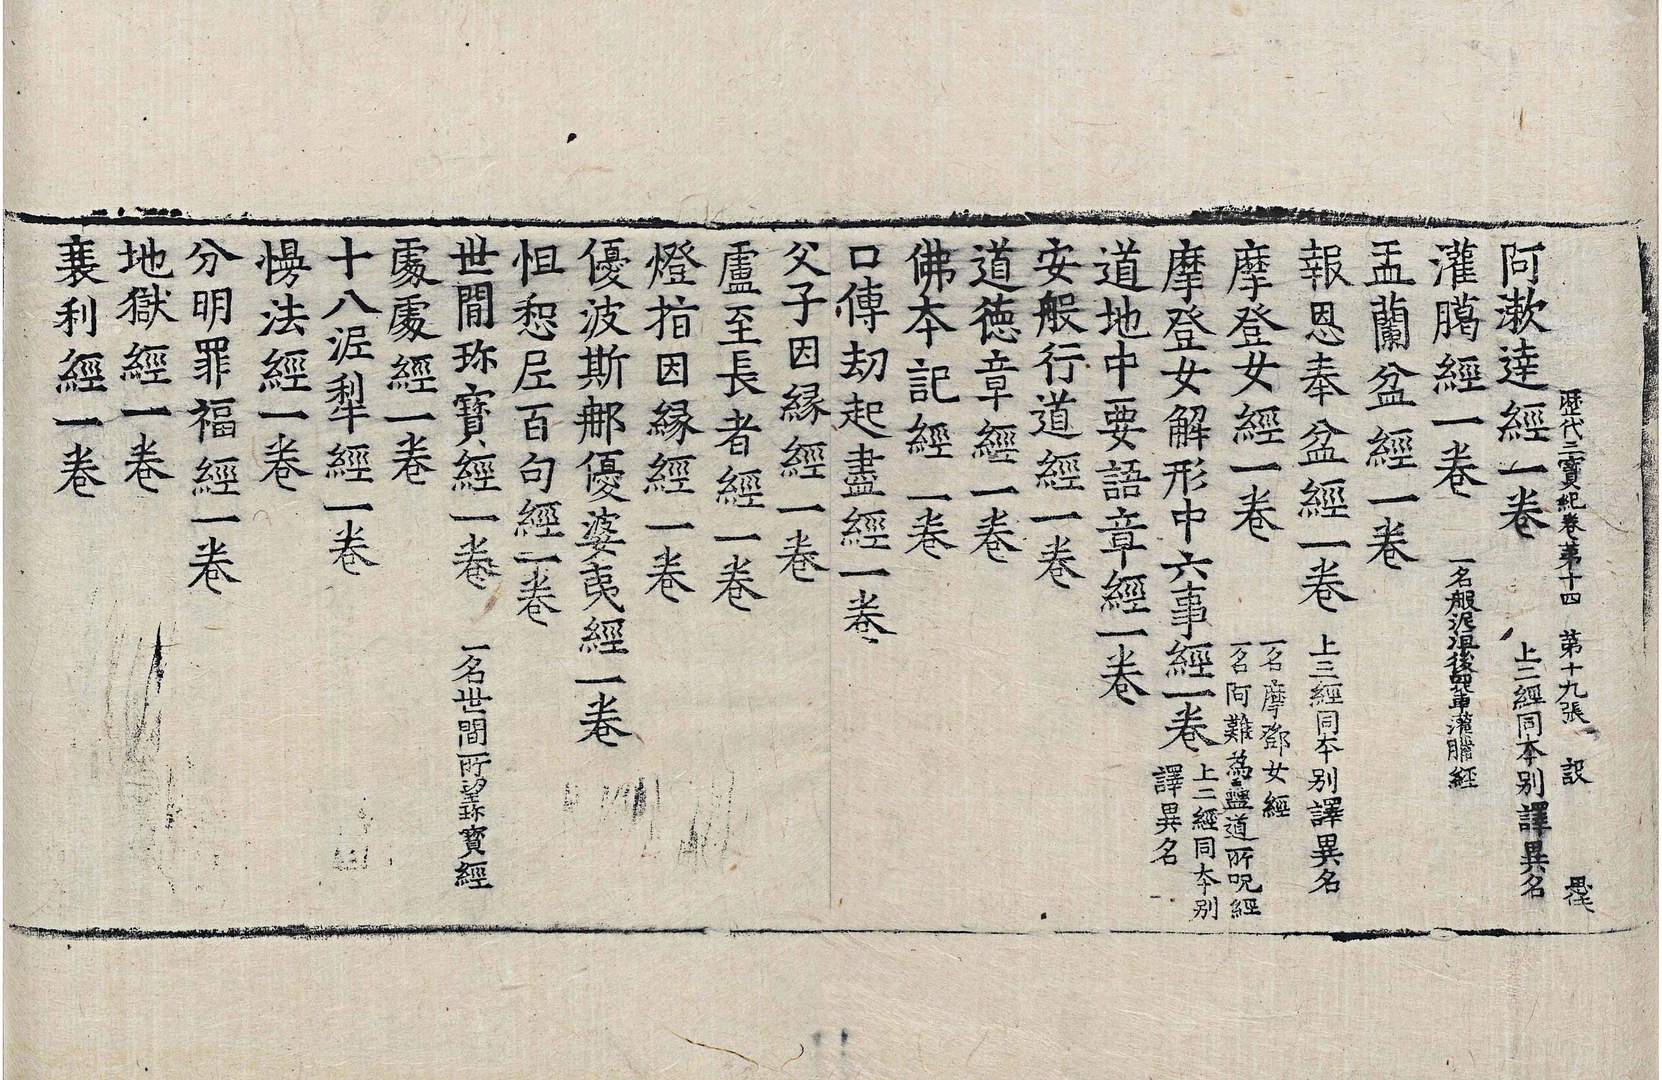 歷代三寶紀卷第十四　第十九張　設
阿漱達經一卷　上三經同本別譯異名
灌臈經一卷　一名般泥洹後四輩灌臈經
盂蘭盆經一卷
報恩奉盆經一卷　上三經同本別譯異名
摩登女經一卷　一名摩鄧女經
一名阿難為蠱道所呪經
摩登女解形中六事經一卷　上二經同本別
譯異名
道地中要語章經一卷
安般行道經一卷
道德章經一卷
佛本記經一卷
口傳劫起盡經一卷
父子因縁經一卷
盧至長者經一卷
燈指因縁經一卷
優波斯那優婆夷經一卷
怛惒尼百句經一卷
世間珎寶經一卷　一名世間所望珎寶經
處處經一卷
十八泥犁經一卷
慢法經一卷
分明罪福經一卷
地獄經一卷
蓑利經一卷